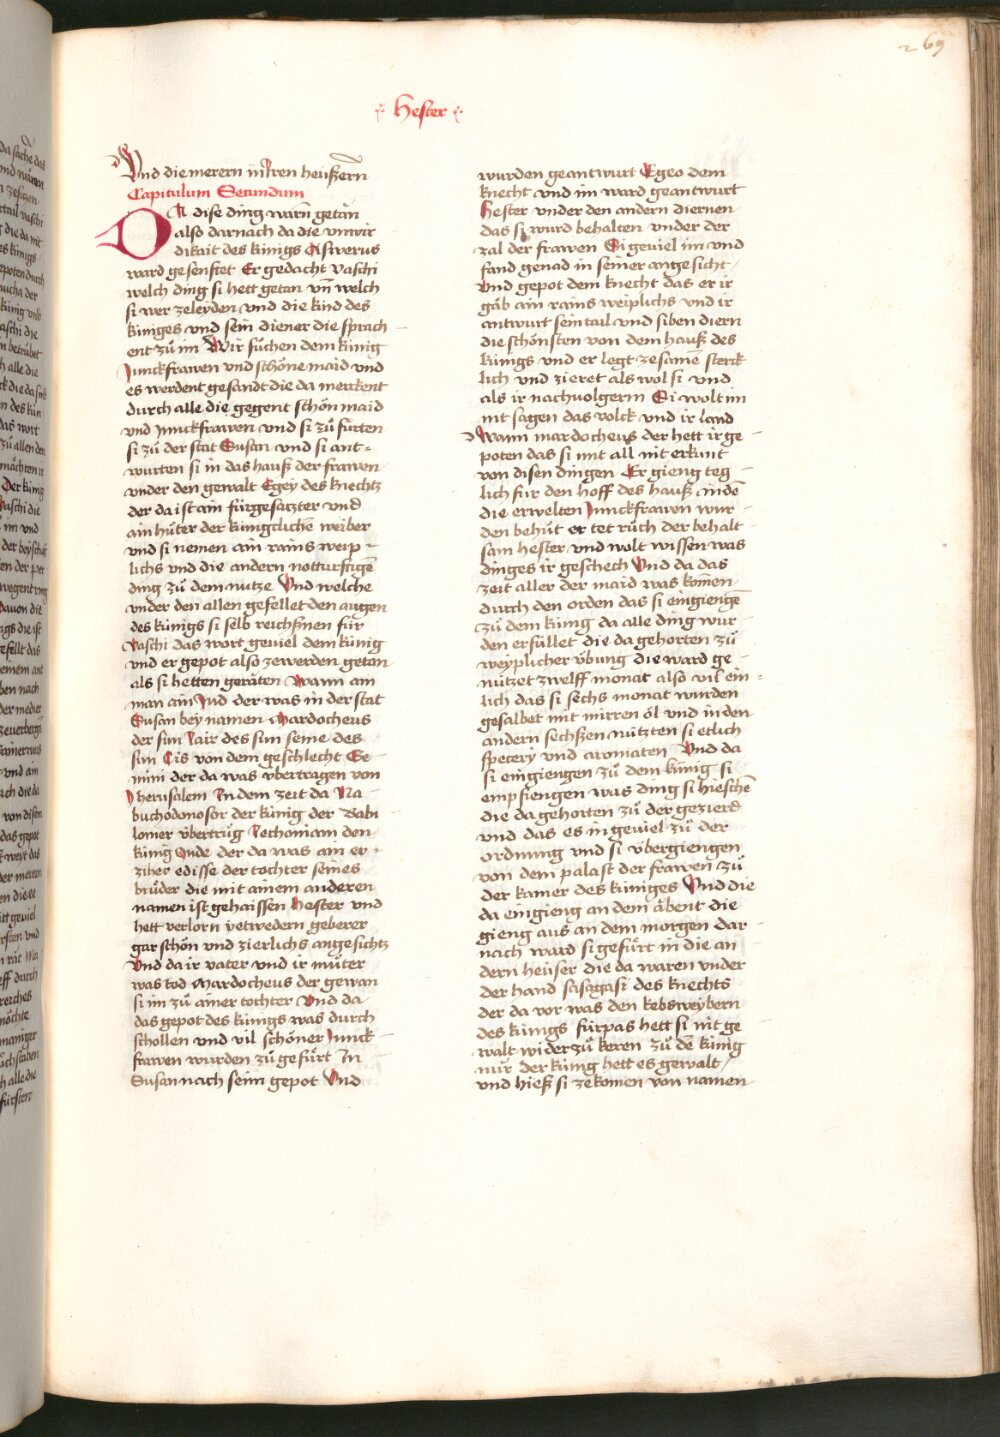 269
Hester
Vnd die merern in Iren heußern
Capitulum Secundum
DA dise ding warn getan
also darnach da die vnwir
dikait des künigs Aswerus
ward gesenftet Er gedacht vaschi
welch ding si hett getan vn̄ welch
si wer zeleyden vnd die kind des
küniges vnd sein diener die sprach
ent zů im Wir sůchen dem künig
Junckfrawen vnd schöne maid vnd
es werdent gesandt die da merckent
durch alle die gegent schön maid
vnd Junckfrawen vnd si zů fürten
si zů der stat Susan vnd si ant-
wurten si in das hauß der frawen
vnder den gewalt Egey des knechtz
der da ist ain fürgesatzter vnd
ain hůter der künigcliche weiber
vnd si nemen ain rains weip-
lichs vnd die andern notturftige
ding zů dem nutze Vnd welche
vnder den allen gefellet den augen
des künigs si selb reichsnen für
vaschi das wort geviel dem künig
vnd er gepot also zewerden getan
als si hetten geraten Wann ain
man ain Jud der was in der stat
Susan bey namen Mardocheus
der sun Jair des sun seme des
sun Cis von dem geschlecht Ge
mini der da was vbertragen von
Jherusalem In dem zeit da Na
buchodonosor der künig der Babi
lonier vbertrůg Jechoniam den
künig Jude der da was ain er-
ziher edisse der tochter seines
brůder die mit ainem anderen
namen ist gehaissen Hester vnd
hett verlorn yetwedern geberer
gar schön vnd zierlichs angesichtz
Vnd da ir vater vnd ir můter
was tod Mardocheus der gewan
si im zů ainer tochter Vnd da
das gepot des künigs was durch
schollen vnd vil schöner Junck
frawen wurden zů gefürt In
Susan nach seim gepot Vnd
wurden geantwurt Egeo dem
knecht vnd im ward geantwurt
Hester vnder den andern diernen
das si wurd behalten vnder der
zal der frawen Si geviel im vnd
fand genad in seiner angesicht
Vnd gepot dem knecht das er ir
gäb ain rains weiplichs vnd ir
antwurt sein tail vnd siben diern
die schönsten von dem hauß des
künigs vnd er legt zesamē sterck
lich vnd zieret als wol si vnd
als ir nachuolgerin Si wolt im
nit sagen das volck vnd ir land
Wann mardocheus der hett ir ge
poten das si mit all nit erkunt
von disen dingen Er gieng teg
lich fur den hoff des hauß in dē
die erwelten Junckfrawen wur
den behůt er tet růch der behalt
sam hester vnd wolt wissen was
dinges ir geschech Vnd da das
zeit aller der maid was komen
durch den orden das si eingienge
zů dem künig da alle ding wur
den erfüllet die da gehorten zů
weyplicher vbung die ward ge
nützet zwelff monat also vil ein-
lich das si sechs monat wurden
gesalbet mit mirren öl vnd in den
andern sechßen nützten si etlich
spetery vnd aromaten Vnd da
si eingiengen zů dem künig si
empfiengen was ding si hieschē
die da gehorten zů der gezierd
vnd das es in geviel zů der
ordnung vnd si vbergiengen
von dem palast der frawen zů
der kamer des küniges Vnd die
da eingieng an dem abent die
gieng aus an dem morgen dar
nach ward si gefürt in die an
dern heüser die da waren vnder
der hand sasagasi des knechts
der da vor was den kebsweybern
des künigs fürpas hett si nit ge
walt wider zů keren zů dē künig
nur der künig hett es gewalt
vnd hieß si zekomen von namen